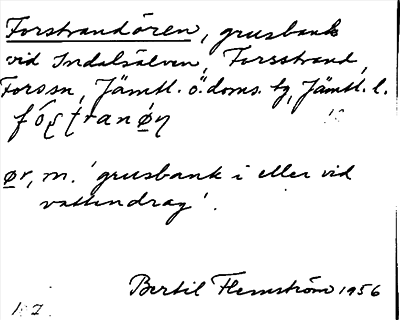 Forstrandören, grusbank
vid Indalsälven, Forsstrand,
Fors sn, Jämtl. ö. doms. tg, Jämtl. l.
ør, m. 'grusbank i eller vid
vattendrag'.
Bertil Flemström 1956